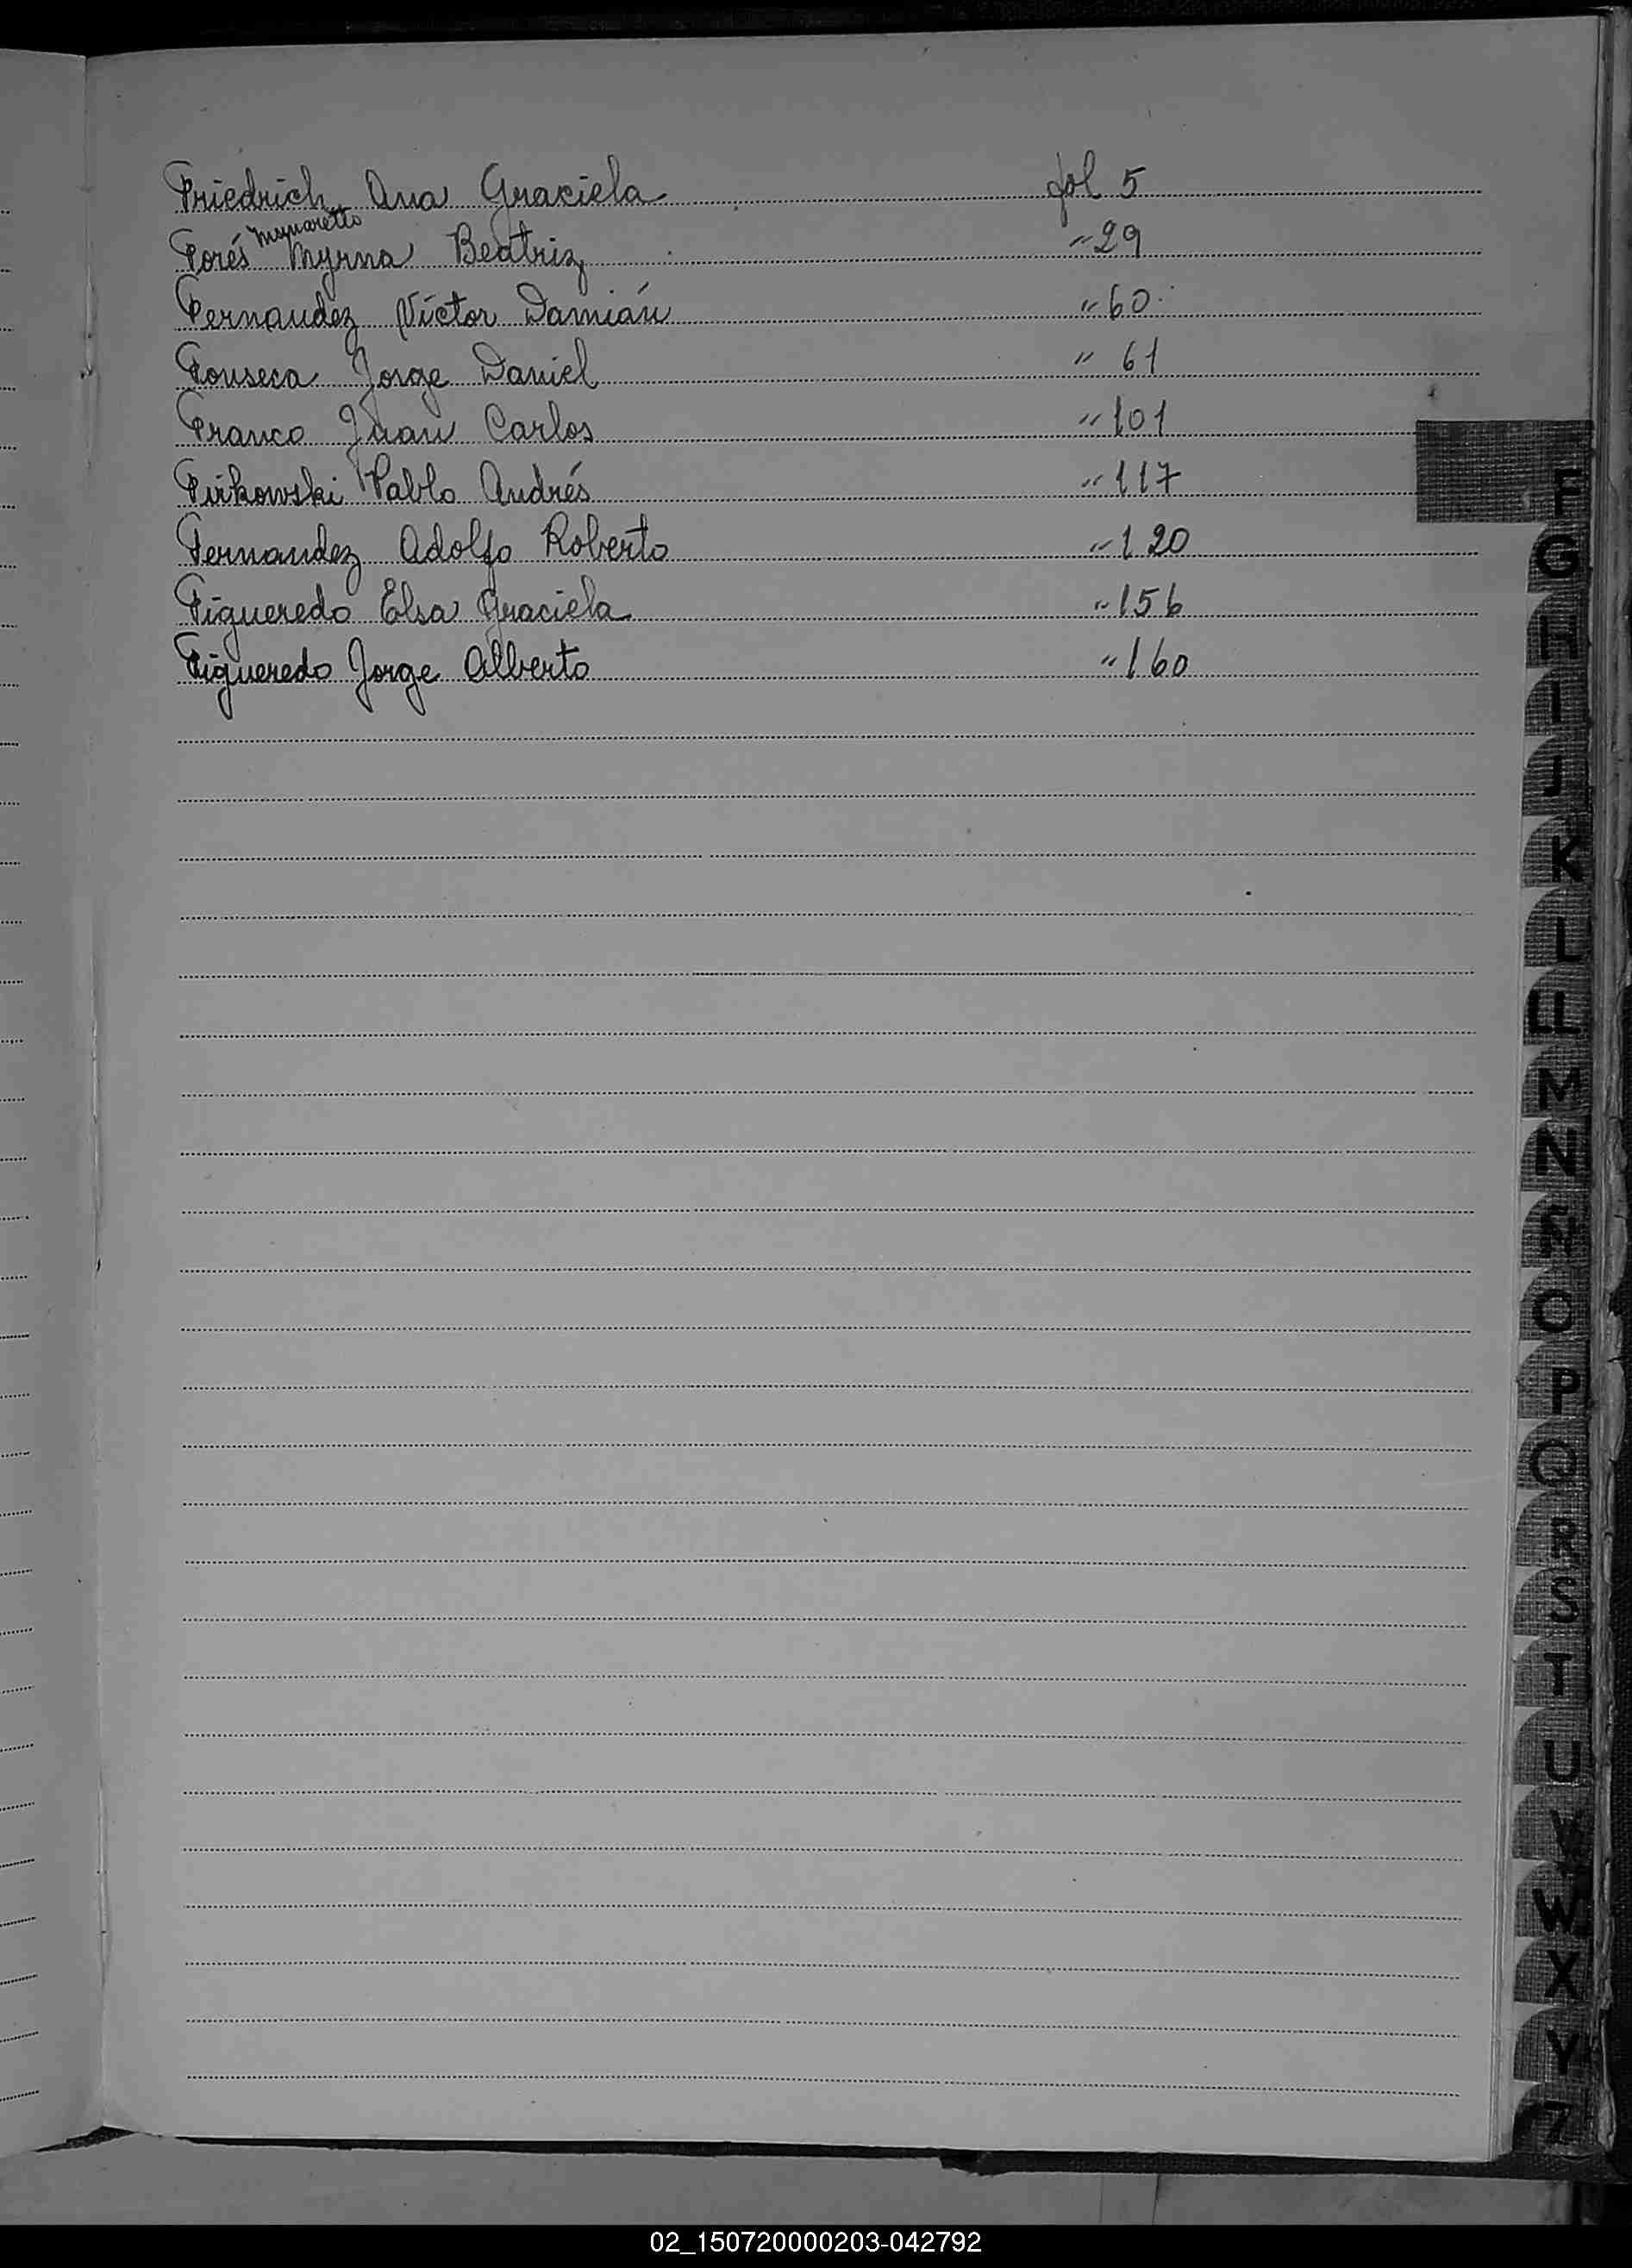 Friedrich Ana Graciela fol 5
Munaretto
Forés Myrna Beatriz " 29
Fernandez Víctor Damián " 60
Fonseca Jorge Daniel " 61
Franco Juan Carlos " 101
Pablo Andrés " 117
Fernandez Adolfo Roberto " 120
Figueredo Elsa Graciela " 156
Figueredo Jorge Alberto " 160
F
G
H
I
J
K
L
LL
M
N
Ñ
O
P
Q
R
S
T
U
V
W
X
Y
Z
02_150720000203-042792